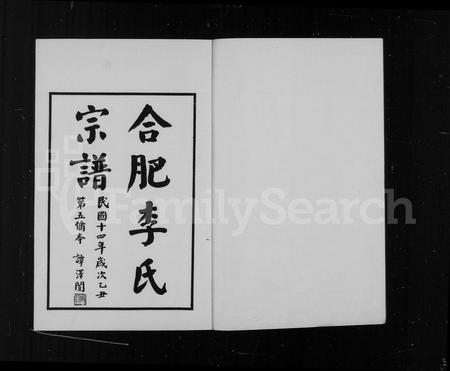 合肥李氏
宗譜
民國十四年歲次乙丑
第五脩本 譚澤闓
FamilySearch